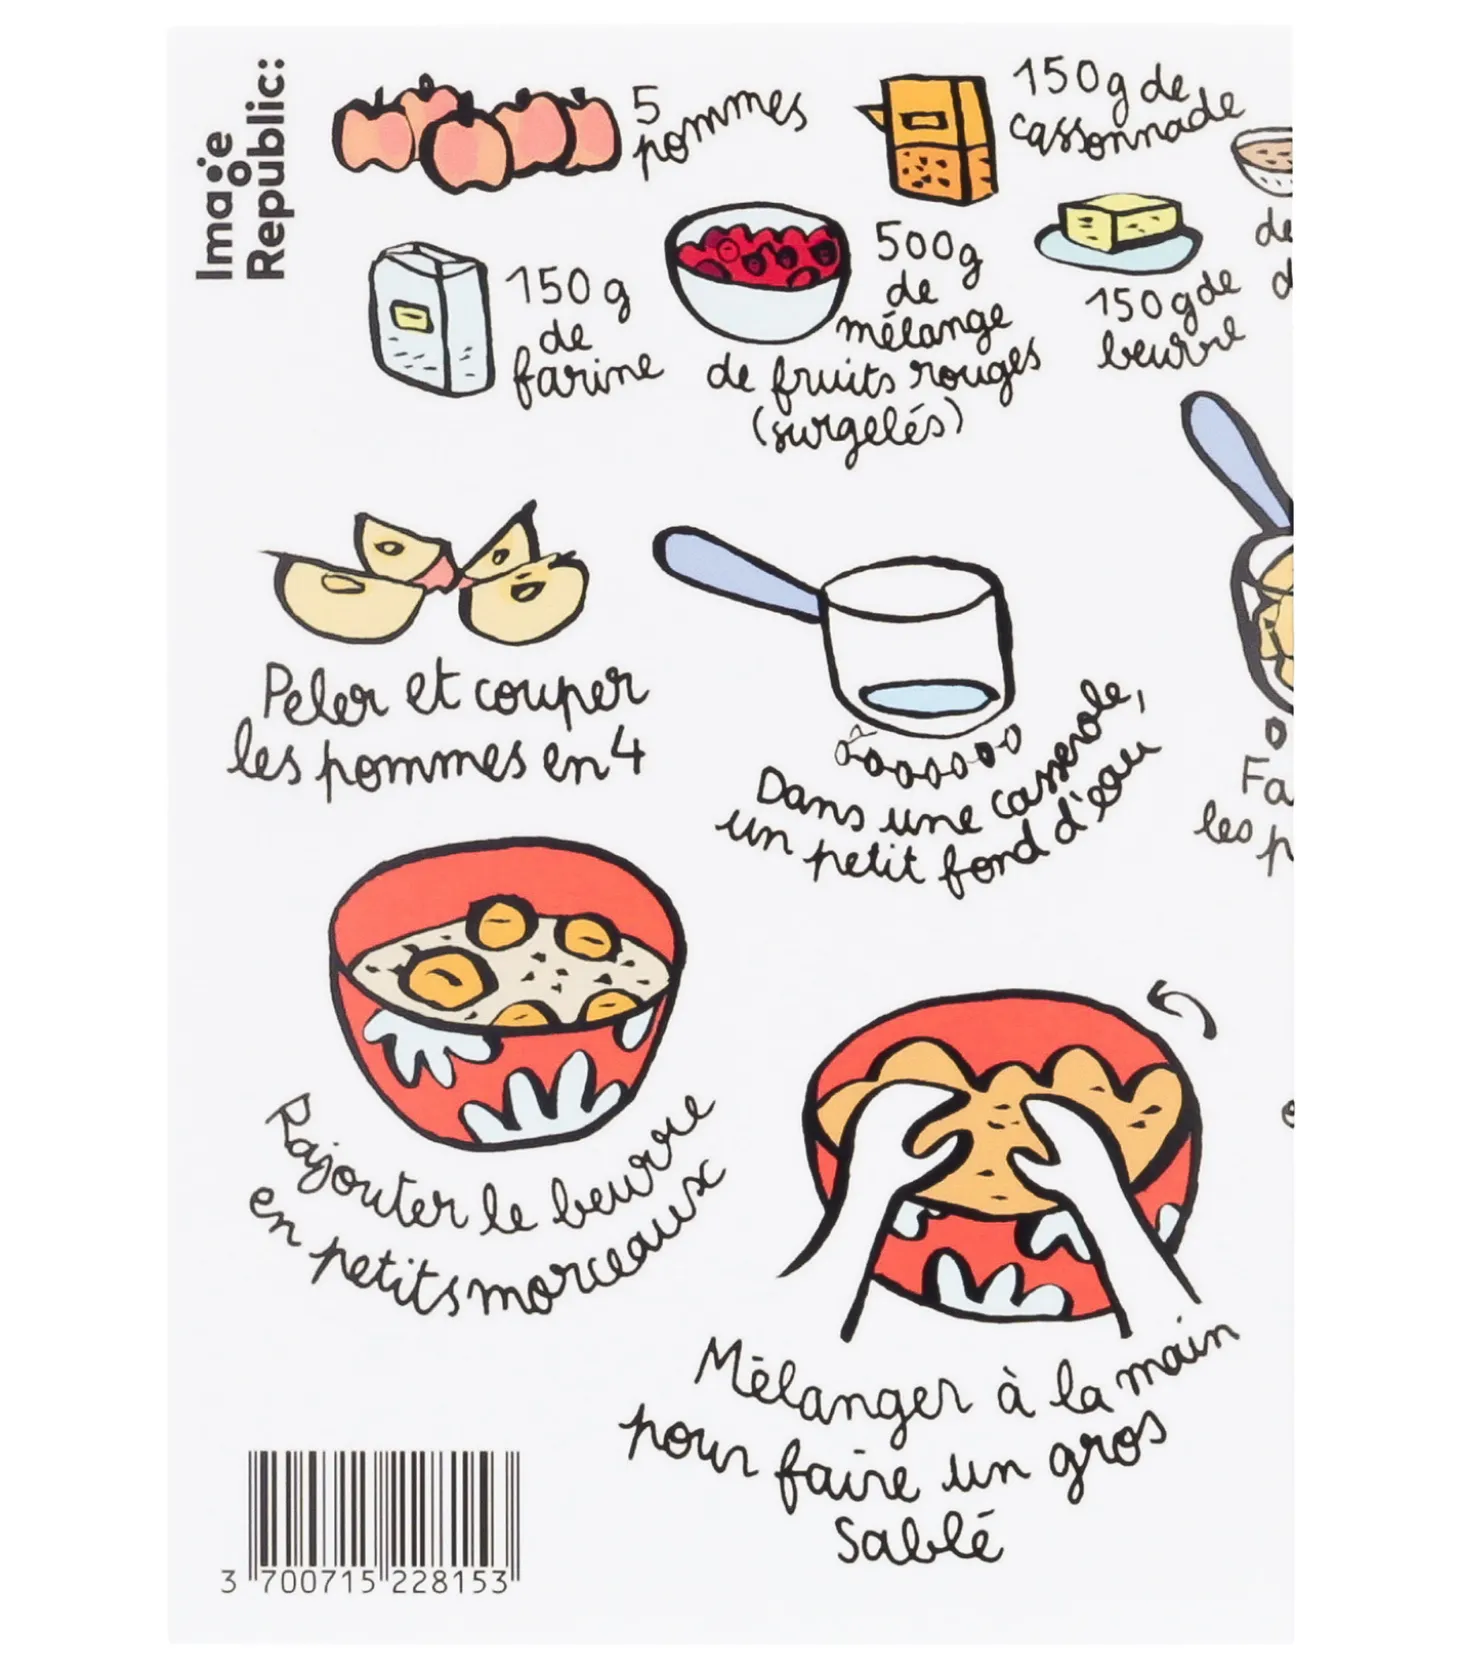 Image
Republic:
5
pommes
150g de
cassonnade
150 g
de
farine
500g
de
mélange
de fruits rouges
(surgelés)
150g de
beurre
de
Peler et couper
les pommes en 4
Dans une casserole,
un petit fond d'eau
Fa
les p
Rajouter le beurre
en petits morceaux
Mélanger à la main
pour faire un gros
sablé
3 700715 228153